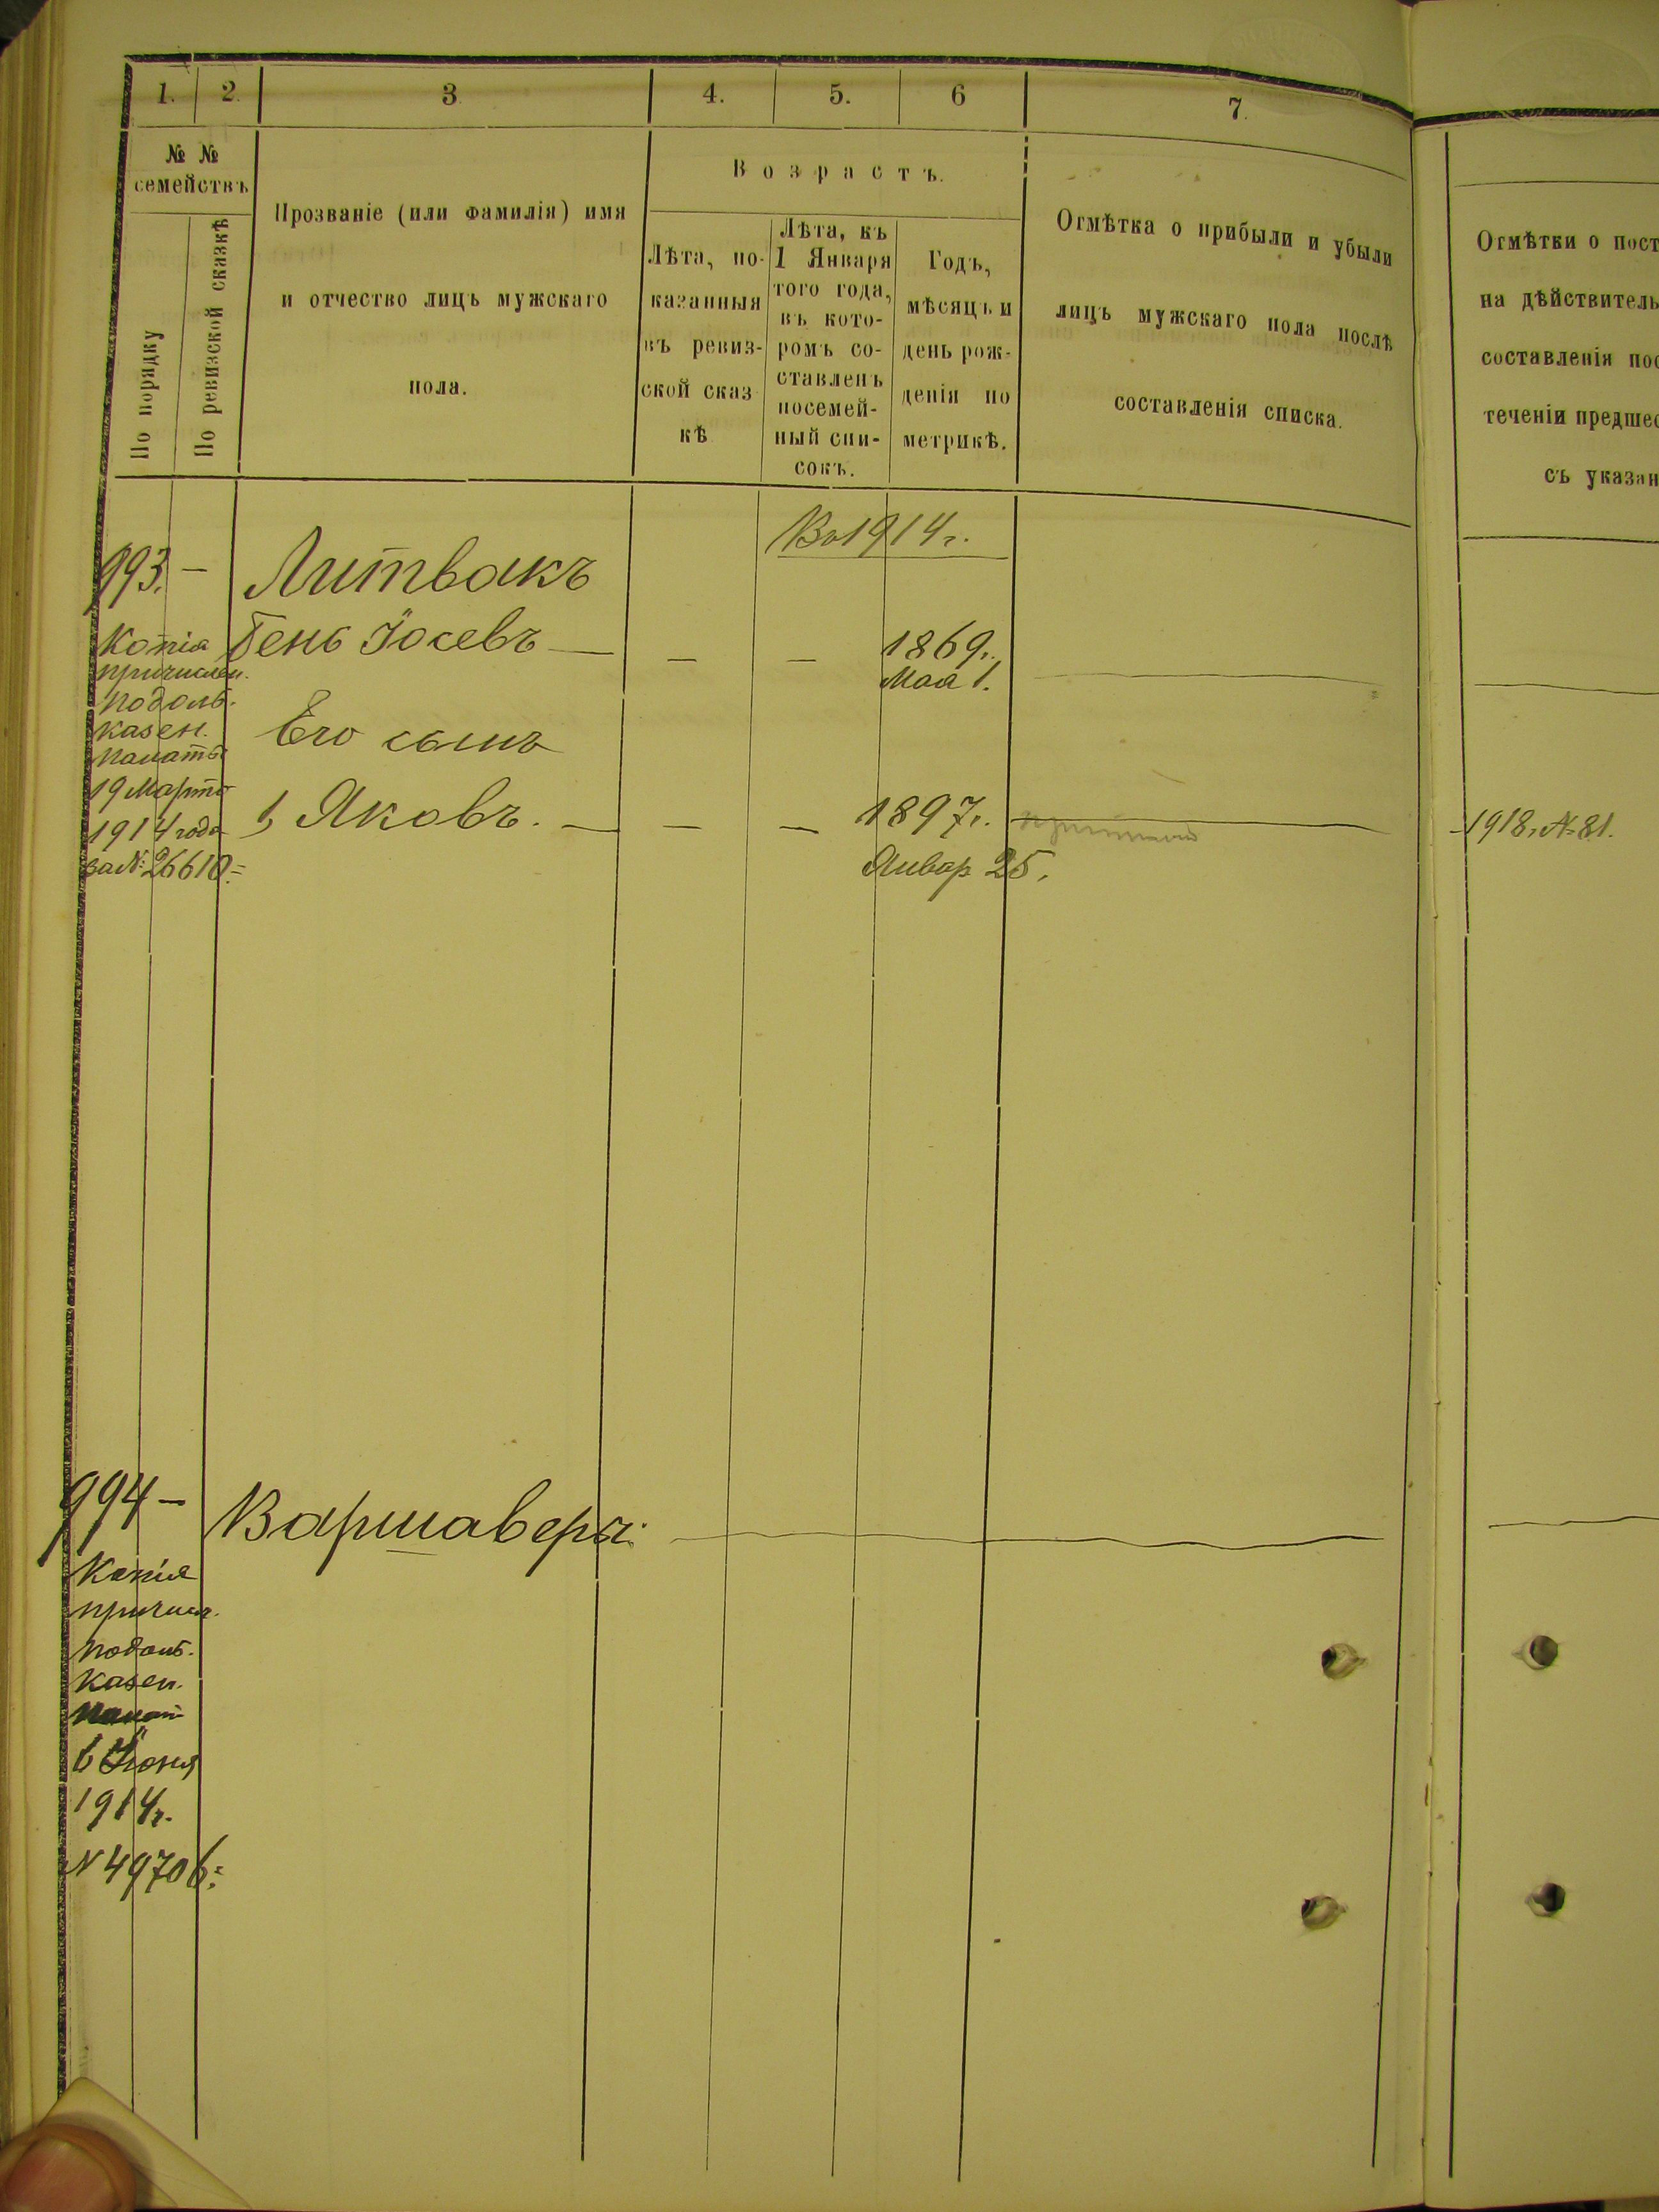 1. 2. 3 4. 5. 6 7.
№ №
семействъ
По порядку
По ревизской сказкѣ
Прозваніе (или Фамилія) имя
и отчество лицъ мужскаго
пола.
Возрастъ.
Лѣта, по-
казанныя
въ ревиз-
ской сказ
кѣ
Лѣта, къ
1 Января
того года,
въ кото-
ромъ со-
ставленъ
посемей-
ный спи-
сокъ.
Годъ,
мѣсяцъ и
день рож-
денія по
метрикѣ.
Отмѣтка о прибыли и убыли
лицъ мужскаго пола послѣ
составленія списка.
Отмѣтки о пост
на дѣйствитель
составленія пос
теченіи предшес
съ указан
Въ 1914 г.
993. — Литвакъ
Бень Іосевъ — — — 1869 г.
Мая 1.
Его сынъ
1, Яковъ. — — — 1897 г.
Январ 25.
1918, № 81.
Копія
причислен.
Подоль.
казен.
палаты
19 Марта
1914 года
за № 26610 =
994 — Варшаверъ
Копія
причисл.
Подоль.
казен.
Палат
6 Іюня
1914 г.
№ 49706 =